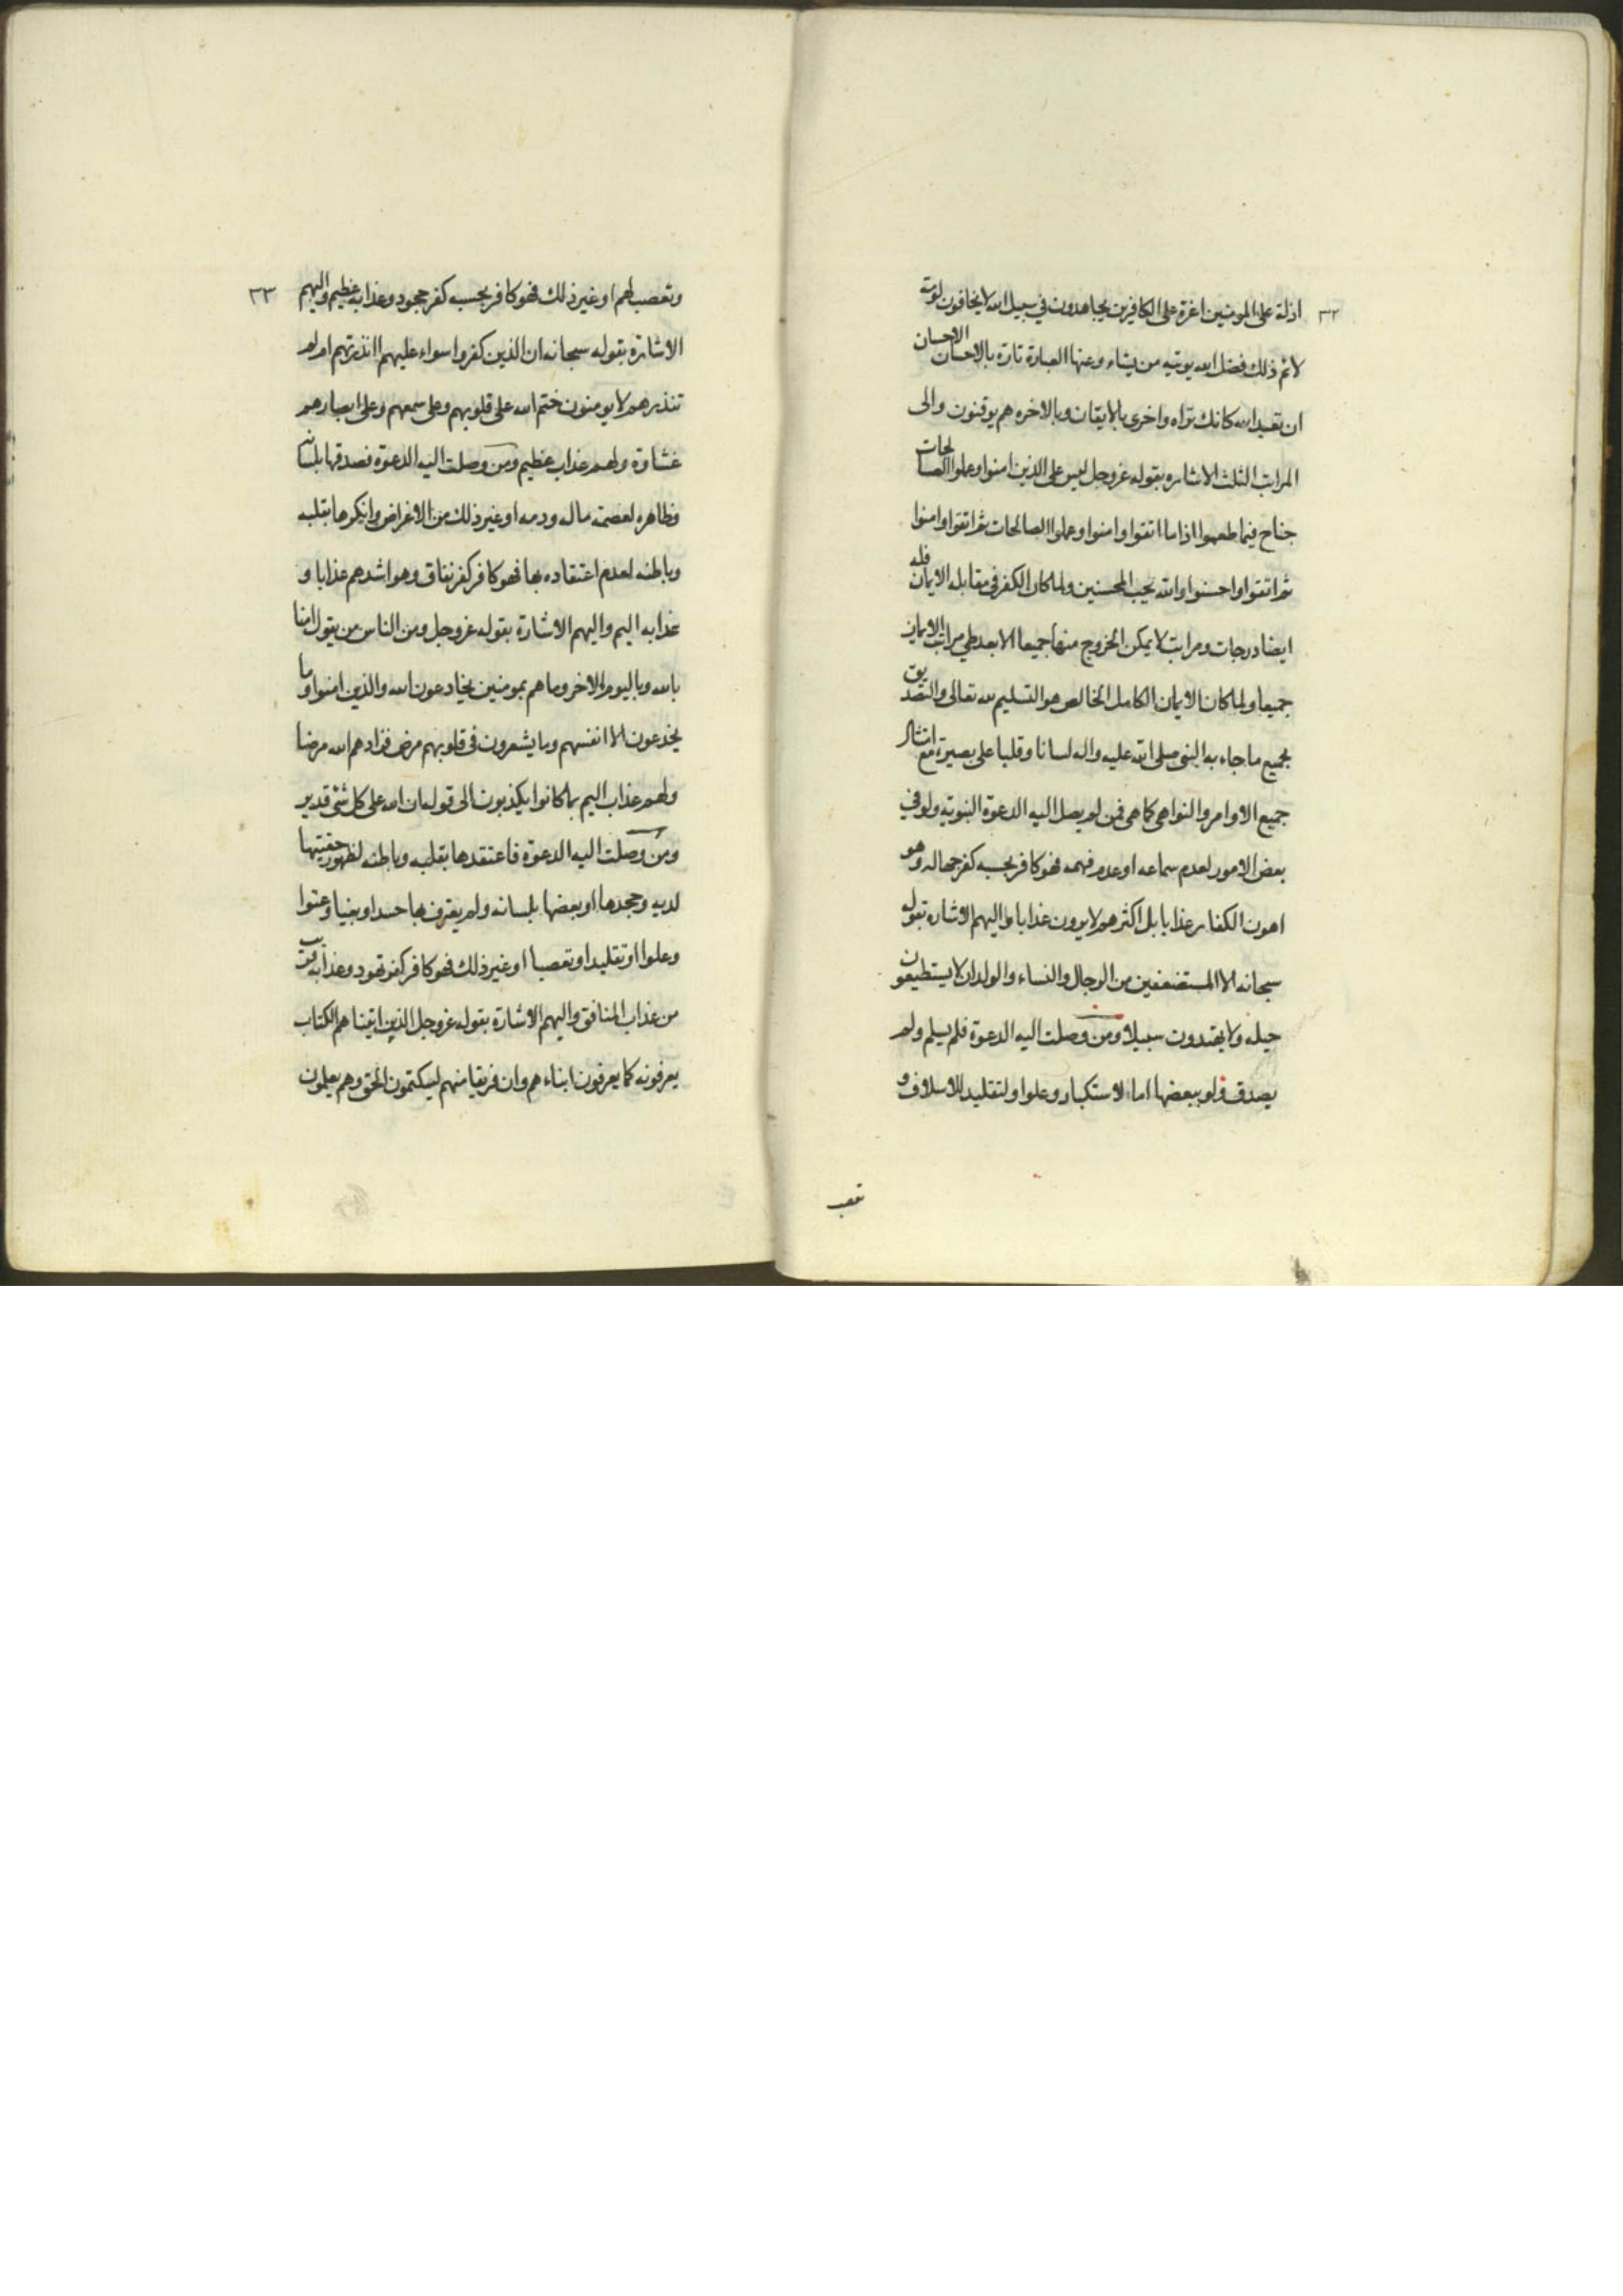 ٣٢
اذلة على المومنين اعزة على الكافرين يجاهدون في سبيل الله لا يخافون لومة
لائم ذلك فضل الله يوتيه من يشاء وعنها العبارة تارة بالاحسان الاحسان
ان تعبد الله كانك تراه واخرى بالايقان وبالاخره هم يوقنون والى
المراتب الثلث الاشاره بقوله عز وجل ليس على الذين امنوا وعملوا الصالحات
جناح فيما طعموا اذا ما اتقوا وامنوا وعملوا الصالحات ثم اتقوا وامنوا
ثم اتقوا واحسنوا والله يحب المحسنين ولما كان الكفر في مقابله الايمان فله
ايضا درجات ومراتب لا يمكن الخروج منها جميعا الا بعد طي مراتب الايمان
جميعا ولما كان الايمان الكامل الخالص هو التسليم لله تعالى والتصديق
بجميع ما جاء به النبى صلى الله عليه واله لسانا وقلبا على بصيرة مع امتثال
جميع الاوامر والنواهي كما هى فمن لم يصل اليه الدعوة النبوتيه ولو في
بعض الامور لعدم سماعه او عدم فهمه فهو كافر بحسبه كفر جهاله وهو
اهون الكفار عذابا بل اكثرهم لا يرون عذابا واليهم الاشاره بقوله
سبحانه الا المستضعفين من الرجال والنساء والولدان لا يستطيعون
حيله ولا يهتدون سبيلا ومن وصلت اليه الدعوة فلم يسلم ولم
يصدق ولو ببعضها اما لاستكبار وعلوا ولتقليد للاسلاف و
تعصب
٣٣
وتعصب لهم او غير ذلك فهو كافر بحسبه كفر جحود وعذابه عظيم واليهم
الاشارة بقوله سبحانه ان الذين كفروا سواء عليهم اانذرتهم ام لم
تنذرهم لا يومنون ختم الله على قلوبهم وعلى سمعهم وعلى ابصارهم
غشاوة ولهم عذاب عظيم ومن وصلت اليه الدعوة فصدقها بلسانه
وظاهره لعصمة ماله ودمه او غير ذلك من الاغراض وانكرها بقلبه
وباطنه لعدم اعتقاده بها فهو كافر كفر نفاق وهو اشدهم عذابا و
عذابه اليم واليهم الاشارة بقوله عز وجل ومن الناس من يقول امنا
بالله وباليوم الاخر وما هم بمومنين يخادعون الله والذين امنوا وما
يخدعون الا انفسهم وما يشعرون في قلوبهم مرض فزادهم الله مرضا
ولهم عذاب اليم بما كانوا يكذبون الى قوله ان الله على كل شئ قدير
ومن وصلت اليه الدعوة فاعتقدها بقلبه وباطنه لظهور حقيتها
لديه وجحدها او بعضها بلسانه ولم يعترف بها حسدا وبغيا وعتوا
وعلوا او تقليدا وتعصبا او غير ذلك فهو كافر كفر تهود وعذابه قريب
من عذاب المنافق واليهم الاشارة بقوله عز وجل الذين اتيناهم الكتاب
يعرفونه كما يعرفون ابناءهم وان فريقا منهم ليكتمون الحق وهم يعلمون